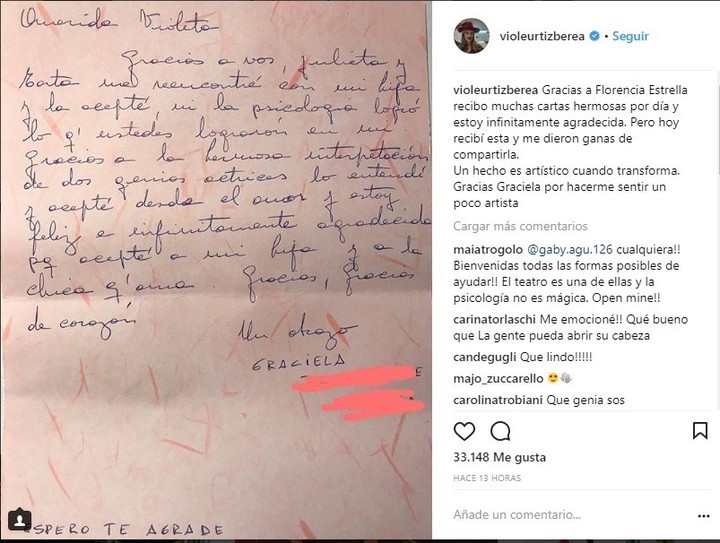 Querida Violeta
Gracias a vos, Julieta y
Esta me reencontré con mi hija
y la acepté, ni la psicología logró
lo q' ustedes lograron en mi
Gracias a la hermosa interpretación
de dos genias actrices lo entendí
y acepté desde el amor y estoy
feliz e infinitamente agradecida
pq acepté a mi hija y a la
chica q' ama. Gracias, gracias
de corazón
Un abrazo
GRACIELA
E
A
ESPERO TE AGRADE
violeurtizberea • Seguir
violeurtizberea Gracias a Florencia Estrella
recibo muchas cartas hermosas por día y
estoy infinitamente agradecida. Pero hoy
recibí esta y me dieron ganas de
compartirla.
Un hecho es artístico cuando transforma.
Gracias Graciela por hacerme sentir un
poco artista
Cargar más comentarios
maiatrogolo @gaby.agu.126 cualquiera!!
Bienvenidas todas las formas posibles de
ayudar!! El teatro es una de ellas y la
psicología no es mágica. Open mine!!
carinatorlaschi Me emocioné!! Qué bueno
que La gente pueda abrir su cabeza
candegugli Que lindo!!!!!
majo_zuccarello 😍👋
carolinatrobiani Que genia sos
33.148 Me gusta
HACE 13 HORAS
Añade un comentario...